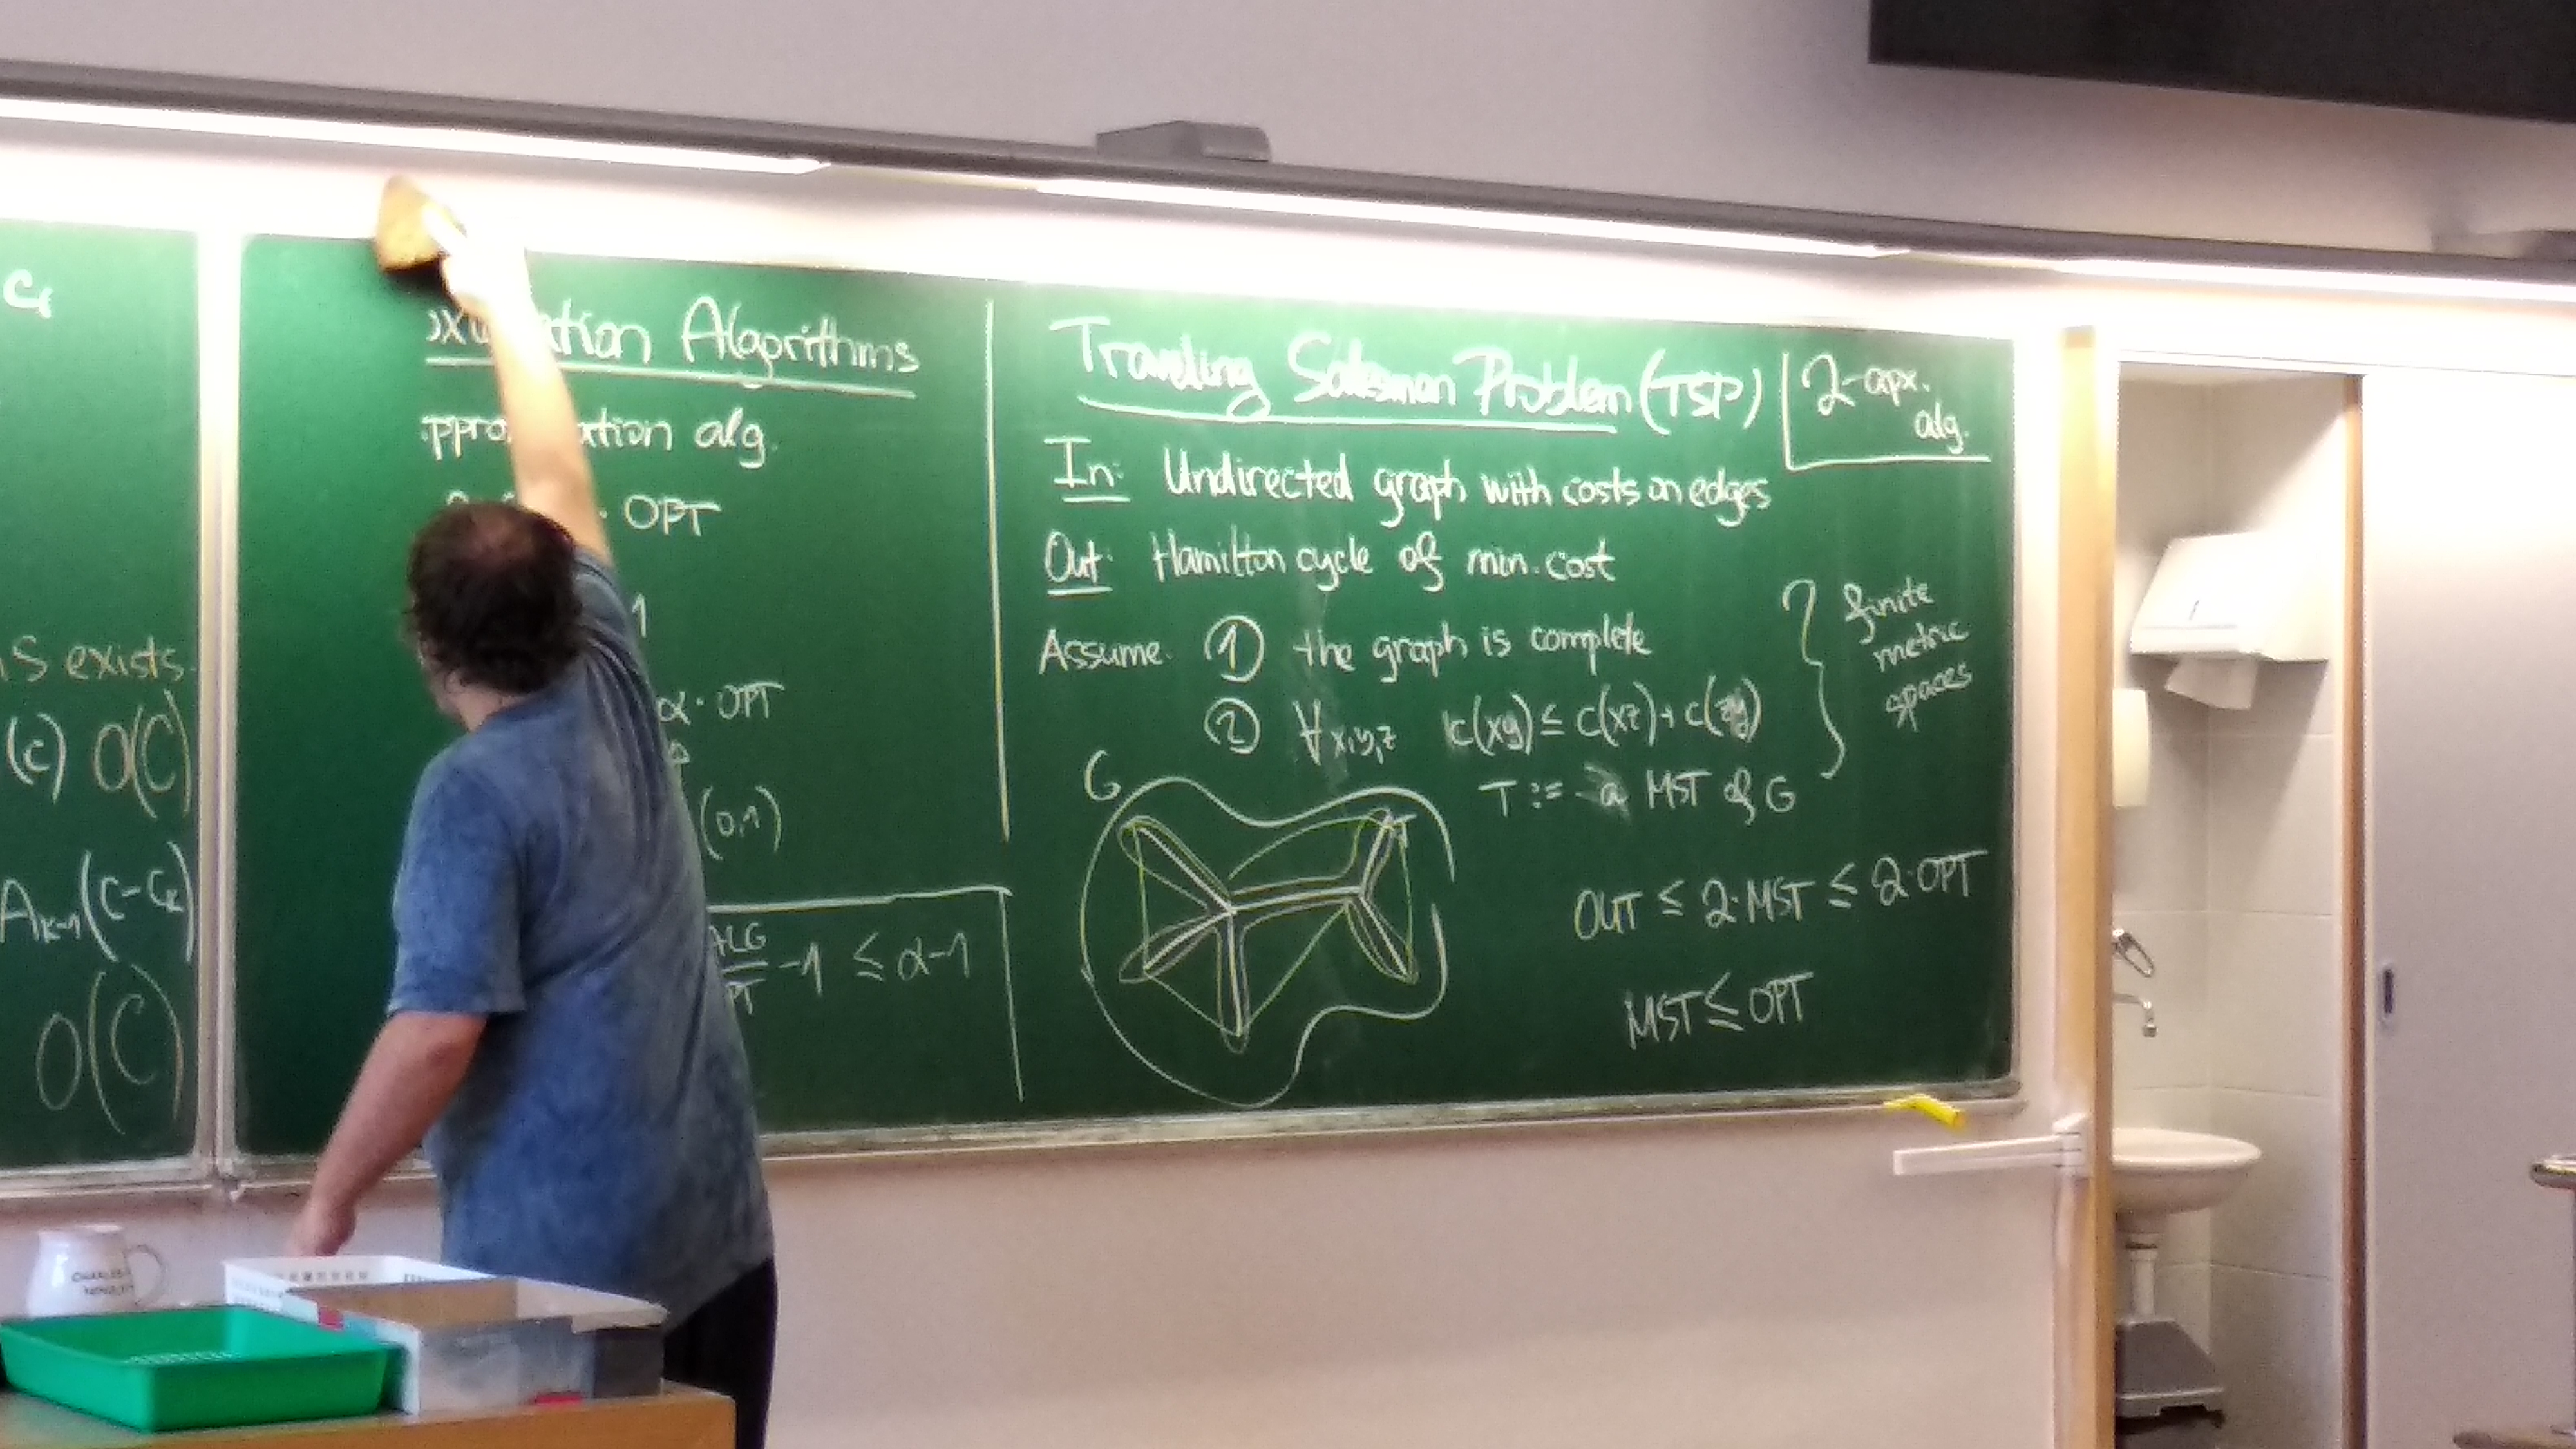 C₁
S exists.
(C) O(C)
Aₖ₋₁(C-Cₖ)
O(C)
tion Algorithms
ation alg.
· OPT
1
α · OPT
(0,1)
ALG
-1 ≤ α-1
PT
Traveling Salesman Problem (TSP)
2-apx. alg.
In: Undirected graph with costs on edges
Out: Hamilton cycle of min. cost
Assume ① the graph is complete
② ∀x,y,z c(xy) ≤ c(xz) + c(zy)
finite
metric
spaces
G
T := a MST of G
T
OUT ≤ 2·MST ≤ 2·OPT
MST ≤ OPT
CHARLES